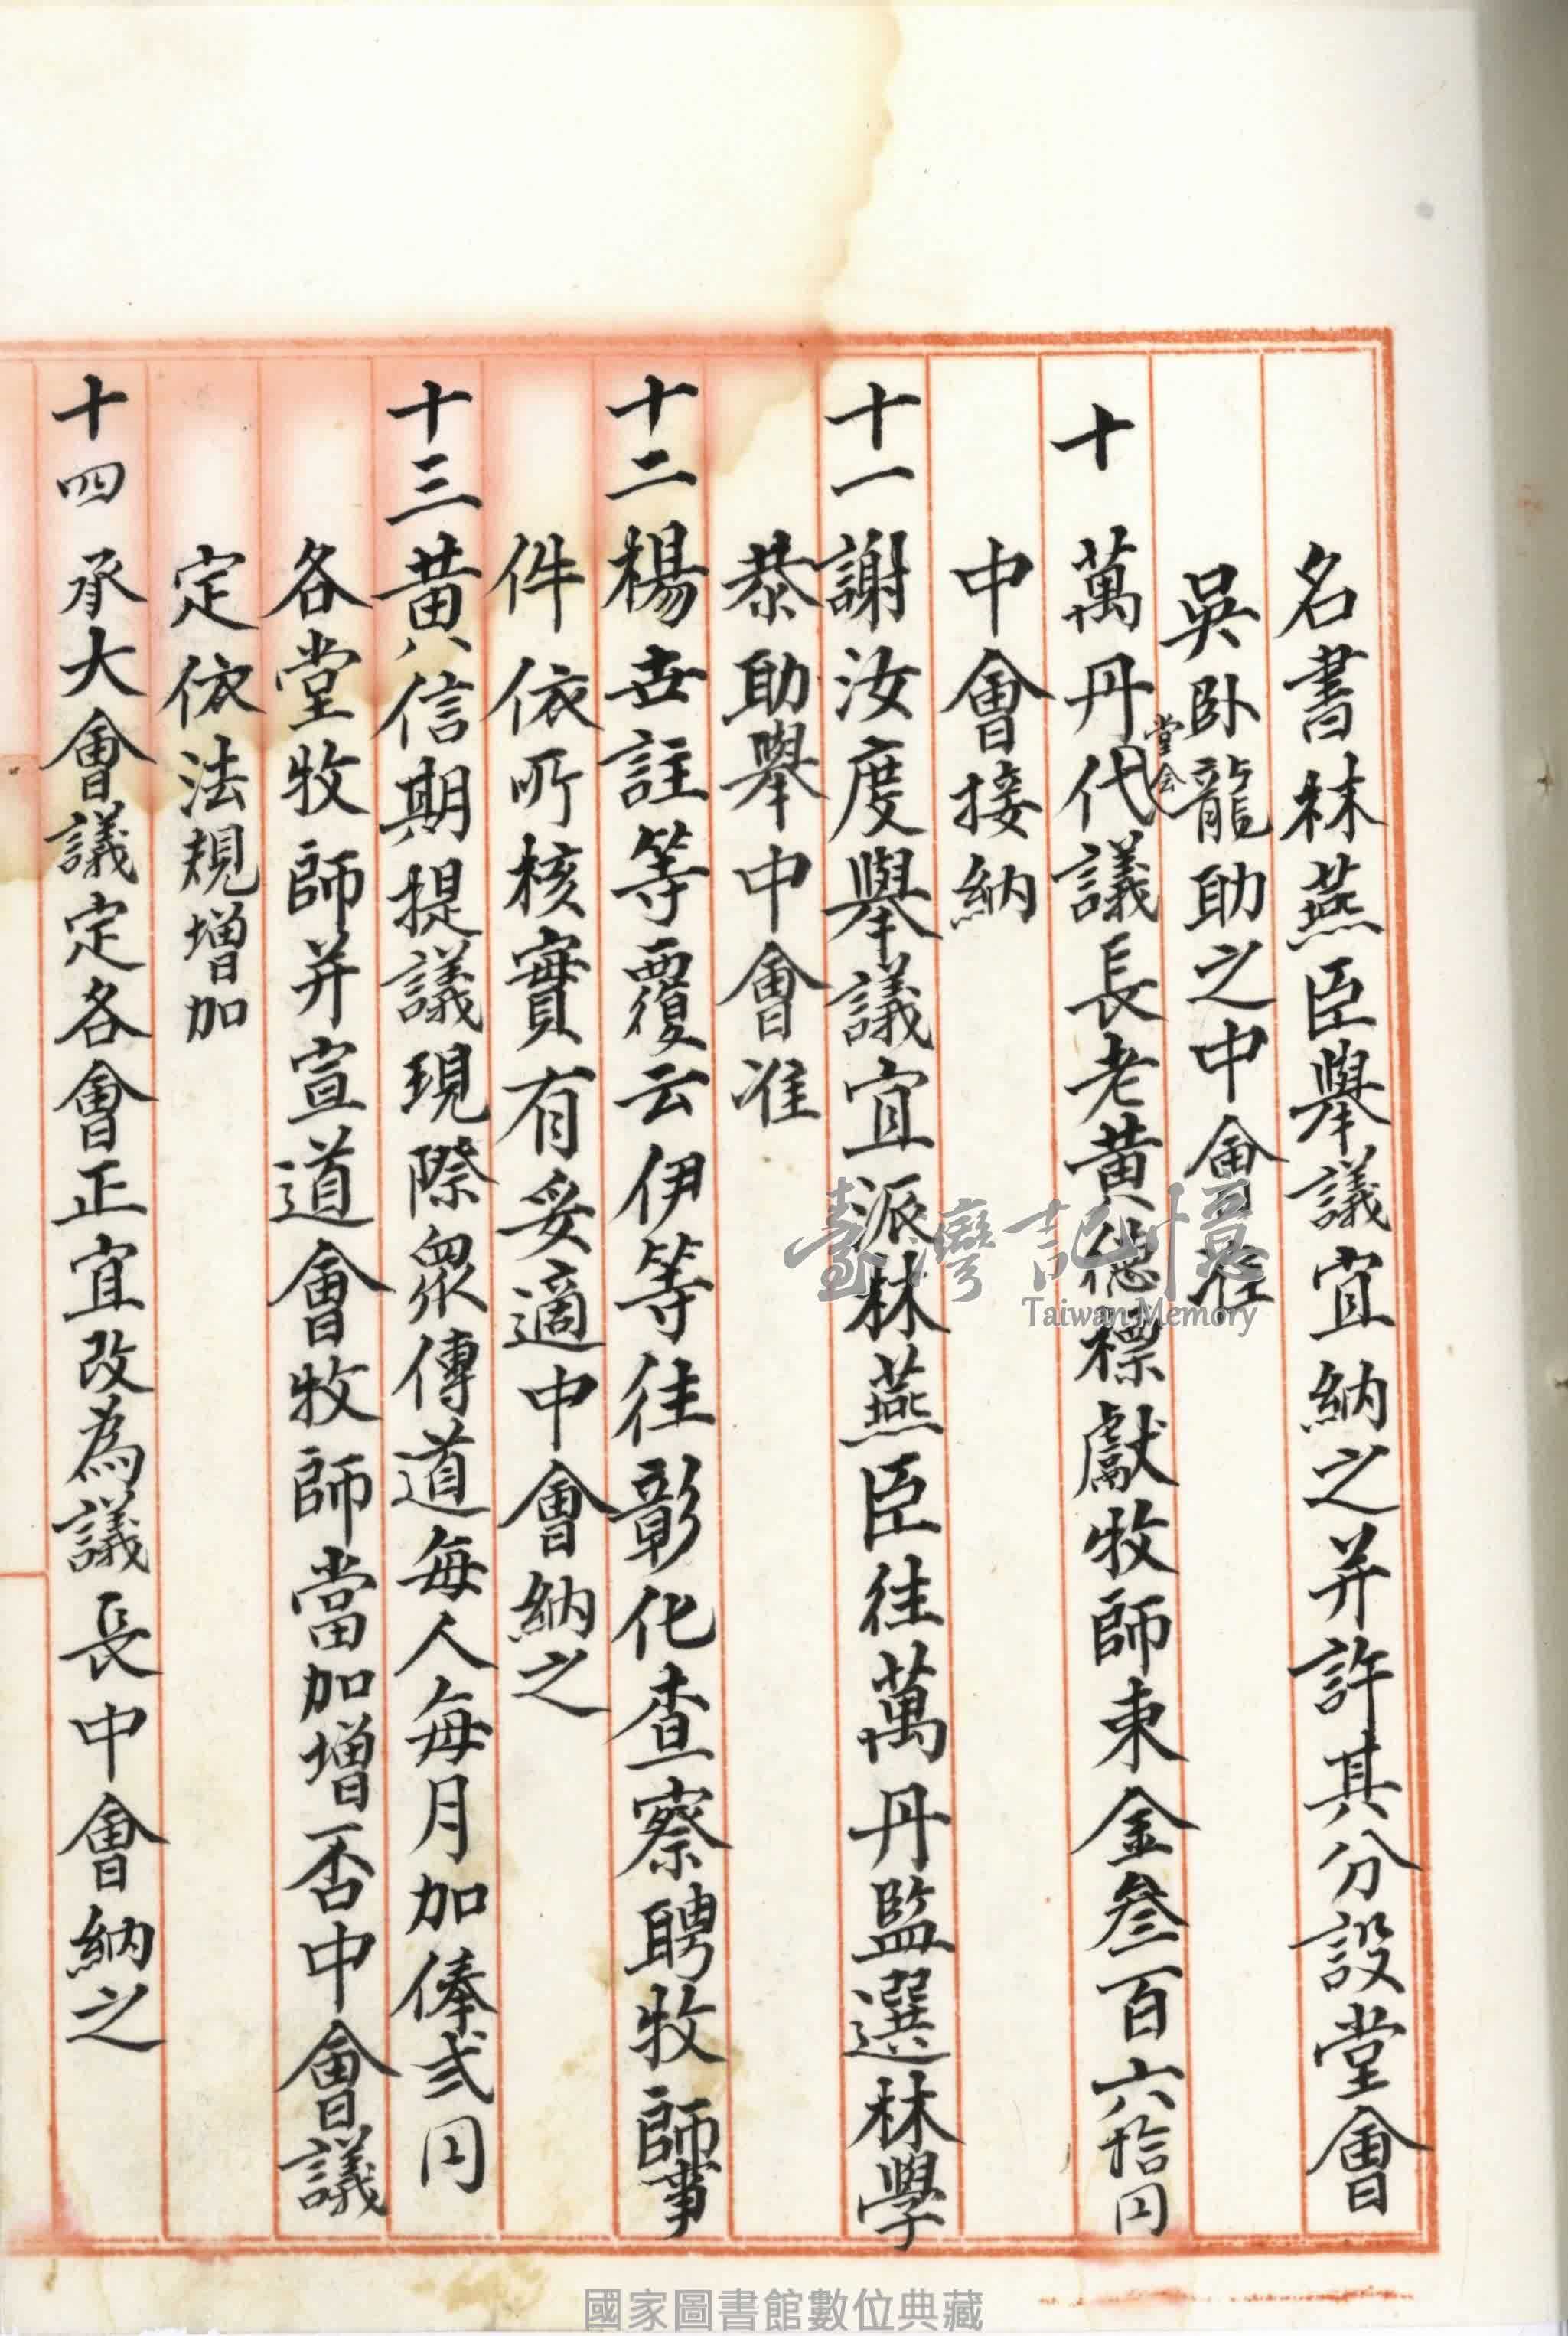 名書林燕臣舉議宜納之并許其分設堂會
吳卧龍助之中會准
十 萬丹代議長老黃德標獻牧師束金叁百六拾円
堂会
中會接納
十一謝汝度舉議宜派林燕臣往萬丹監選林學
恭助舉中會准
十二楊世註等覆云伊等往彰化查察聘牧師事
件依所核實有妥適中會納之
十三黃信期提議現際眾傳道每人每月加俸弍円
各堂牧師并宣道會牧師當加增否中會議
定依法規增加
十四 承大會議定各會正宜改為議長中會納之
臺灣記憶
Taiwan Memory
國家圖書館數位典藏